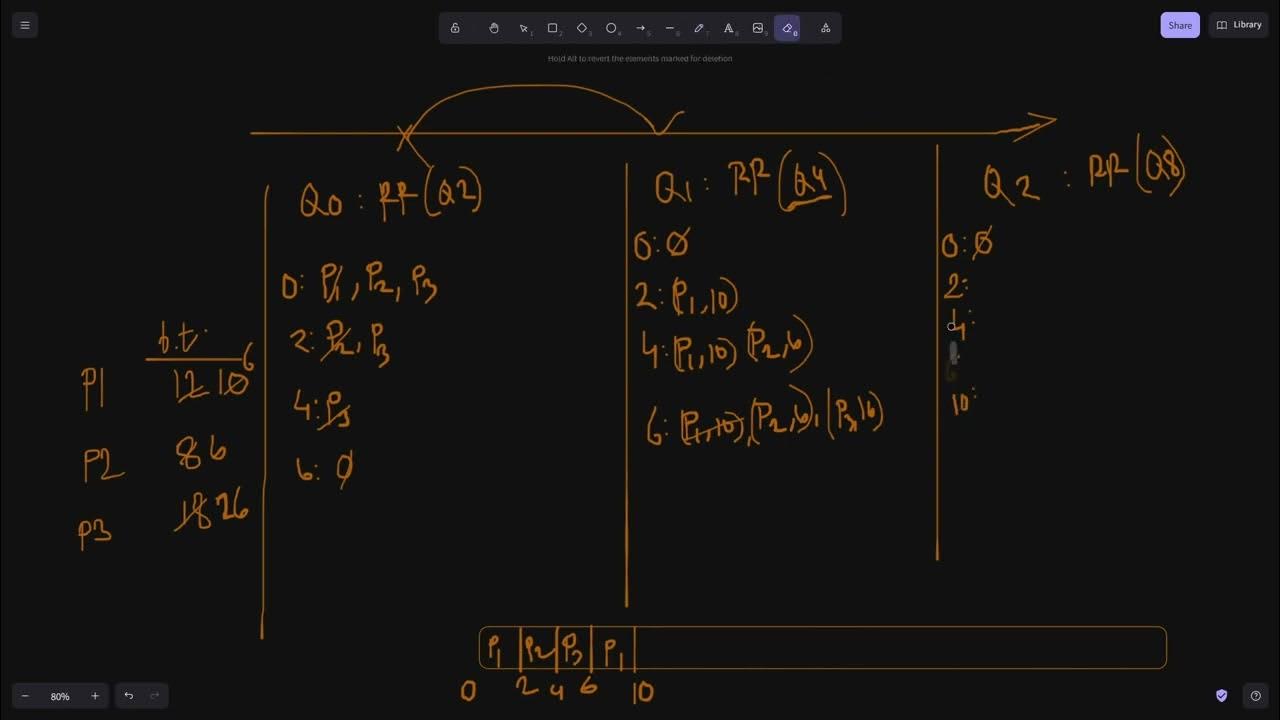 Share
Library
Hold Alt to revert the elements marked for deletion
Q0 : RR (Q2)
0: P1, P2, P3
2: P2, P3
4: P3
6: 0
b.t.
P1 12 10 6
P2 8 6
P3 18 26
Q1 : RR (Q4)
0: Ø
2: (P1, 10)
4: (P1, 10) (P2, 6)
6: (P1, 10), (P2, 6), (P3, 16)
Q2 : RR (Q8)
0: Ø
2:
4:
10:
P1 P2 P3 P1
0 2 4 6 10
80%